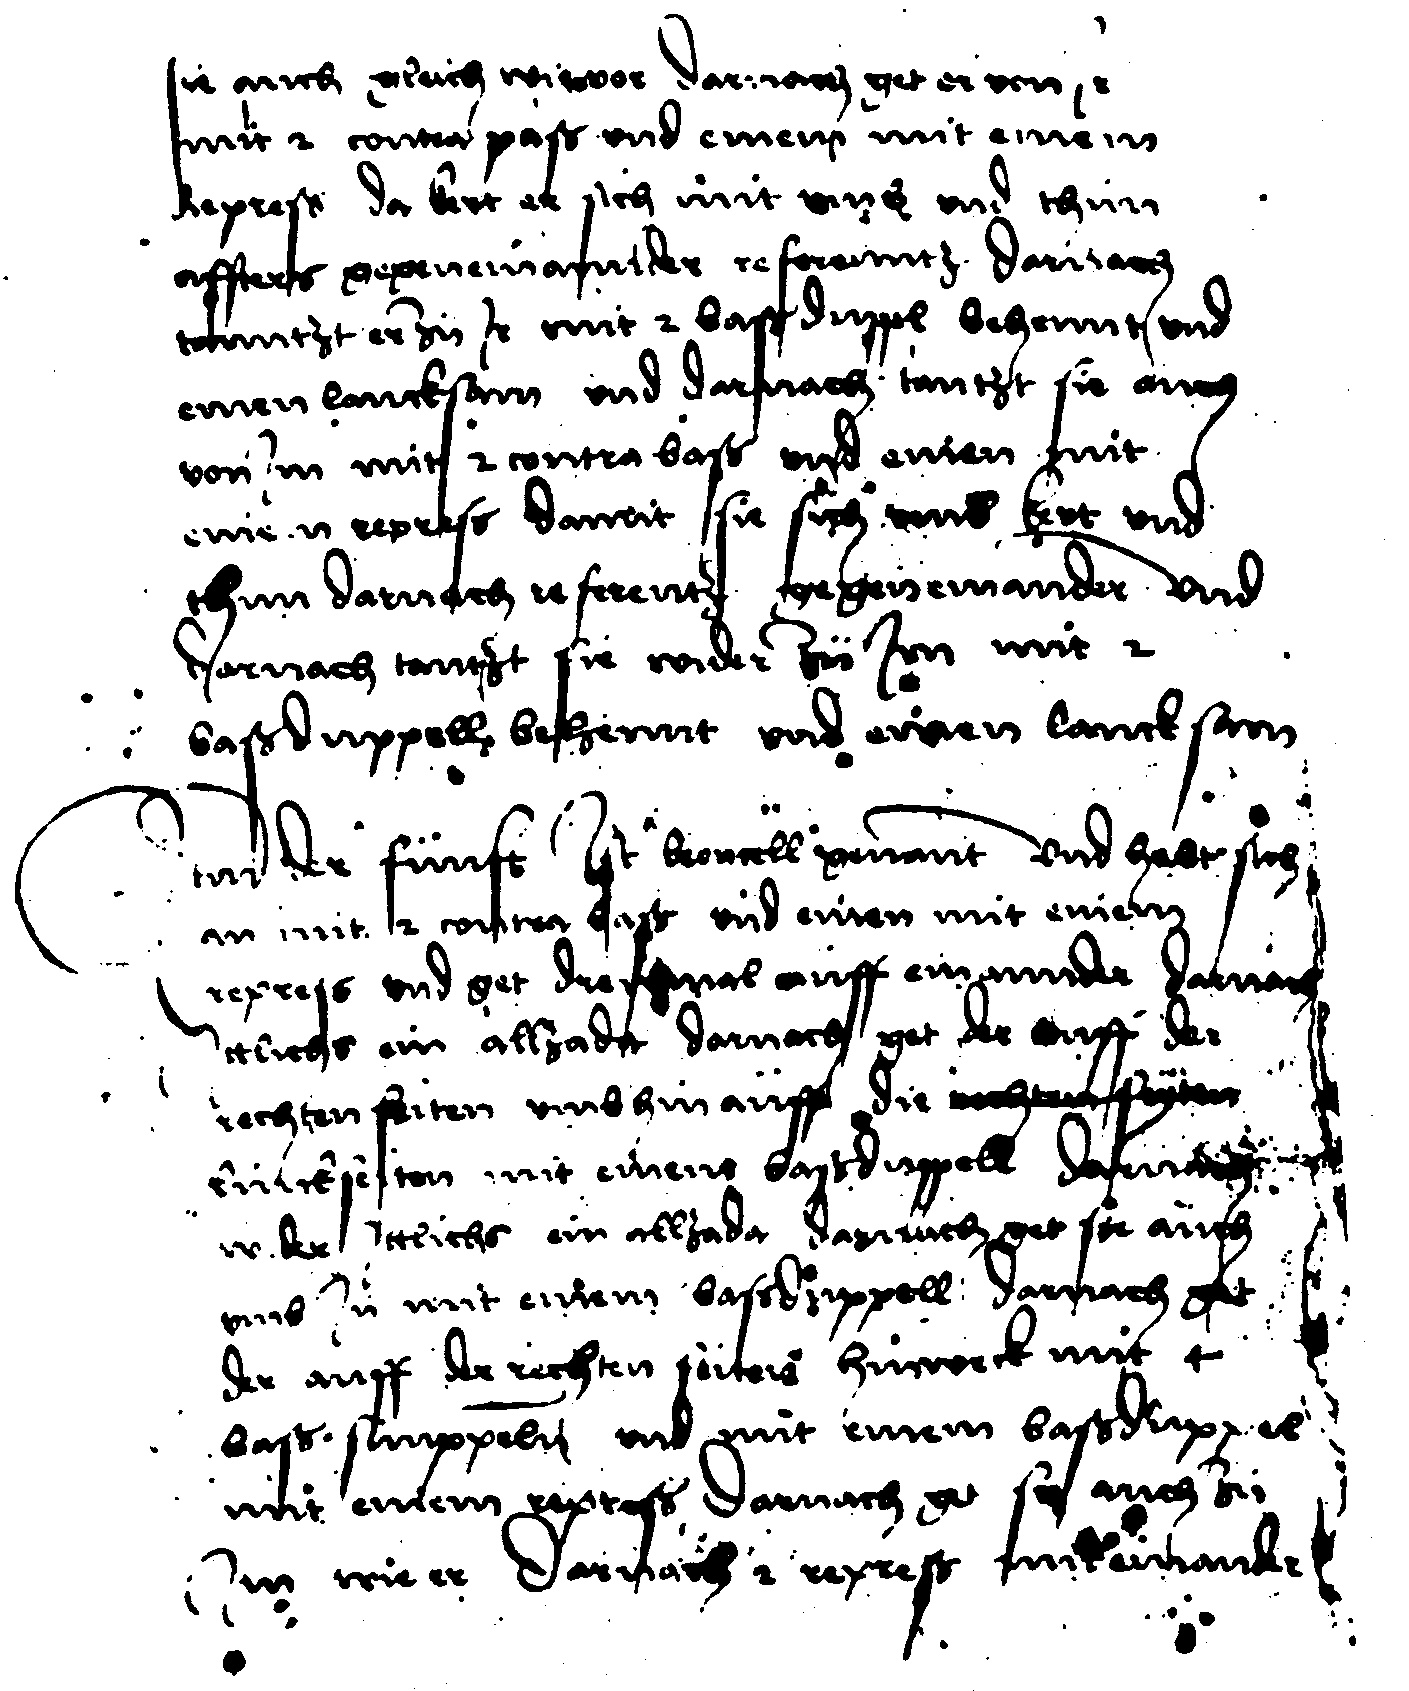 sie auch gleich wie vor Darnach get er von jr
mit 2 contra pass und einem mit einem
Repress da kert er sich mit umb und thun
affters gegeneinannder referenntz Darnach
tanntzt er zu Jr mit 2 bassduppl behennt und
einen lancksam und darnach tantzt sie auch
von Jm mit 2 contra bass und einen mit
einem repress damit sie sich umb kert und
thun darnach referentz gegeneinander und
Darnach tantzt sie wider zu Jm mit 2
bassduppell behennt und einen lancksam
der fünft Jst beoncell genant Und hebt sich
an mit 2 contra bass und einen mit einem
repress und get dreymal auff einannder darnach
ettlichs ein allzada darnach get der auff der
rechten seiten umbhin auff die rechten seyten
linckseiten mit einem bassduppell Darnach
wider Jttlichs ein allzada darnach get sie auch
umb Ju mit einem bassduppell Darnach get
der auff der rechten seiten hinweck mit 4
bass simppeln und mit einem bassduppel
mit einem repress Darnach get sy auch zu
Jm wie er Darnach 2 repress miteinander